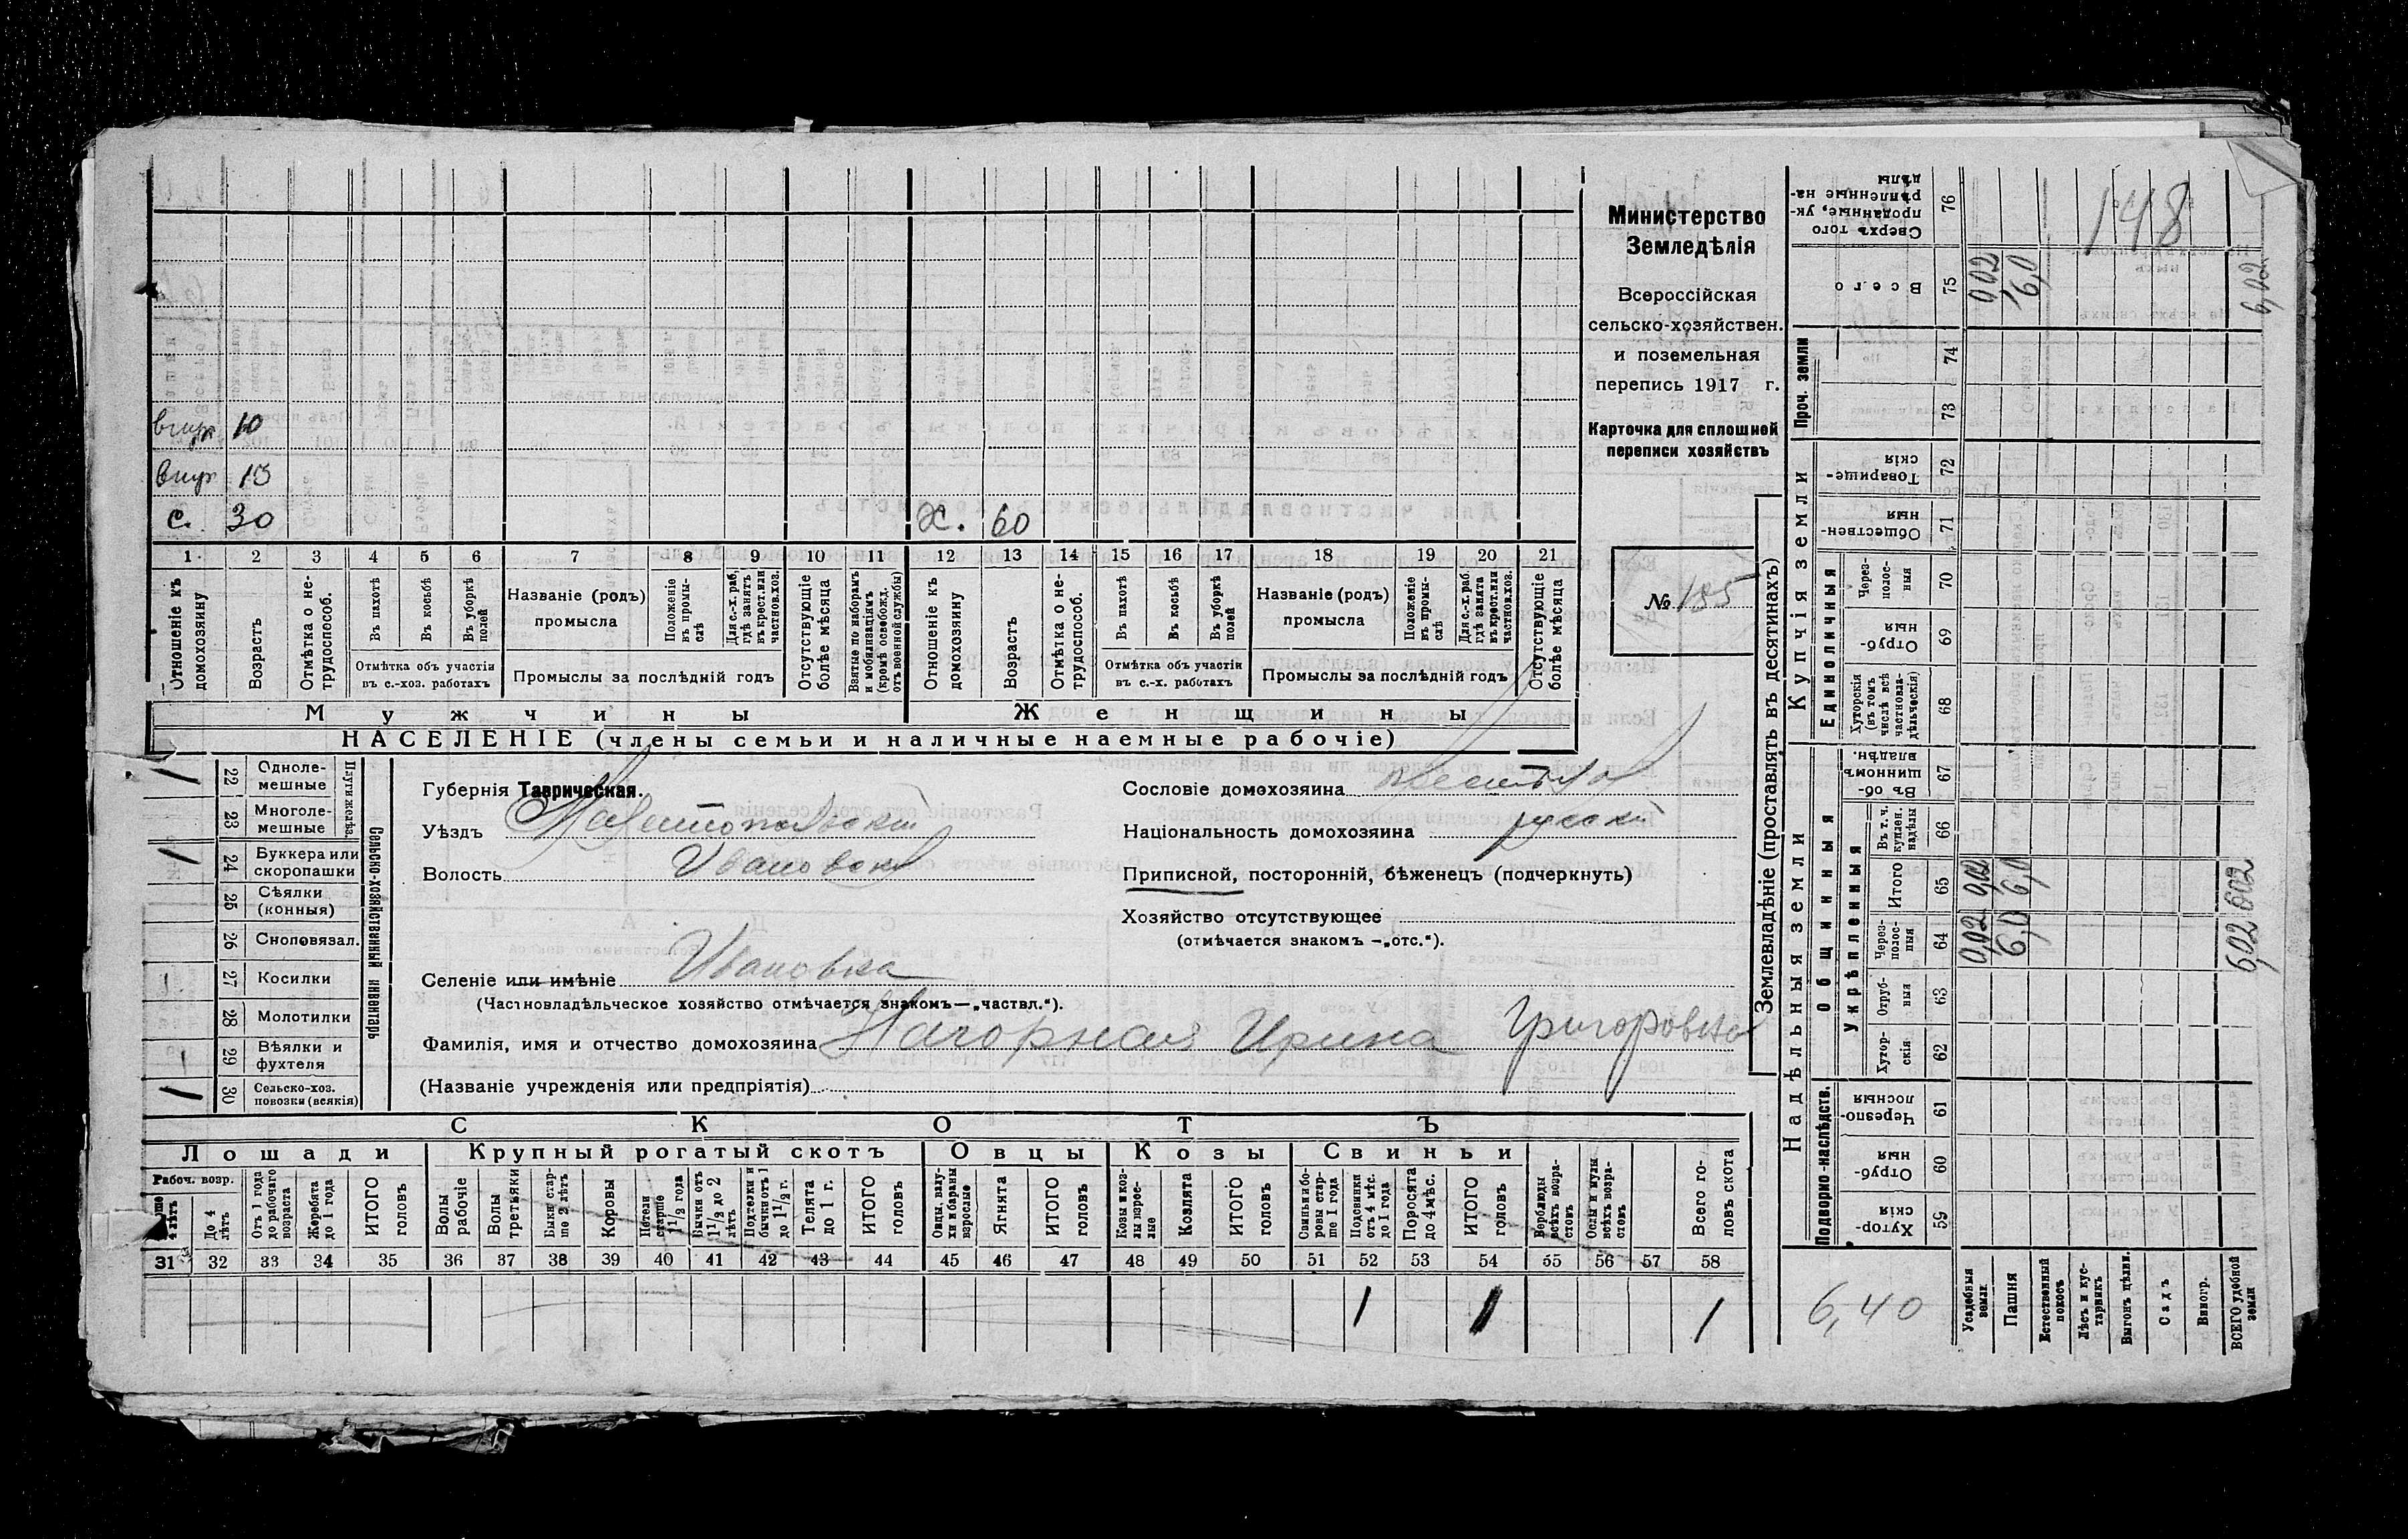 Министерство
Земледѣлія
Всероссійская
сельско-хозяйствен.
и поземельная
перепись 1917 г.
Карточка для сплошной
переписи хозяйствъ
№ 185
внук 10
внук 13
с. 30
Х. 60
1 2 3 4 5 6 7 8 9 10 11 12 13 14 15 16 17 18 19 20 21
Отношеніе къ домохозяину
Возрастъ
Отмѣтка о не-трудоспособ.
Въ пахотѣ
Въ косьбѣ
Въ уборкѣ полей
Отмѣтка объ участіи въ с.-хоз. работахъ
Названіе (родъ) промысла
Положеніе въ промы-слѣ
Для с.-х. раб. гдѣ занятъ въ крест. или частнов. хоз.
Промыслы за послѣдній годъ
Отсутствующіе болѣе мѣсяца
Взятые по наборамъ и мобилизаціямъ (кромѣ освобожд. отъ военной службы)
Отношеніе къ домохозяину
Возрастъ
Отмѣтка о не-трудоспособ.
Въ пахотѣ
Въ косьбѣ
Въ уборкѣ полей
Отмѣтка объ участіи въ с.-х. работахъ
Названіе (родъ) промысла
Положеніе въ промы-слѣ
Для с.-х. раб. гдѣ занята въ крест. или частнов. хоз.
Промыслы за послѣдній годъ
Отсутствующіе болѣе мѣсяца
Мужчины Женщины
НАСЕЛЕНІЕ (члены семьи и наличные наемные рабочіе)
Сельско-хозяйственный инвентарь
Плуги желѣз.
1 22 Одноле-мешные
23 Многоле-мешные
1 24 Буккера или скоропашки
25 Сѣялки (конныя)
26 Сноповязал.
1 27 Косилки
28 Молотилки
1 29 Вѣялки и фухтеля
1 30 Сельско-хоз. повозки (всякія)
Губернія Таврическая.
Уѣздъ Мелитопольский
Волость Ивановск
Селеніе или имѣніе Ивановка
(Частновладѣльческое хозяйство отмѣчается знакомъ—„частвл.“).
Фамилія, имя и отчество домохозяина Нагорная Ирина Григоровна
(Названіе учрежденія или предпріятія)
Сословіе домохозяина
Національность домохозяина русский
Приписной, посторонній, бѣженецъ (подчеркнуть)
Хозяйство отсутствующее
(отмѣчается знакомъ —„отс.“).
СКОТЪ
Лошади Крупный рогатый скотъ Овцы Козы Свиньи
Рабоч. возр.
До 4 лѣтъ
Отъ 1 года до рабочаго возраста
Жеребята до 1 года
ИТОГО головъ
Волы рабочіе
Волы третьяки
Быки стар-ше 2 лѣтъ
Коровы
Нетели старше 1½ года
Бычки отъ 1½ до 2 лѣтъ
Подтелки и бычки отъ 1 до 1½ г.
Телята до 1 г.
ИТОГО головъ
Овцы, валу-хи и бараны взрослые
Ягнята
ИТОГО головъ
Козы и коз-лы взрос-лые
Козлята
ИТОГО головъ
Свиньи и бо-ровы стар-ше 1 года
Подсвинки отъ 4 мѣс. до 1 года
Поросята до 4 мѣс.
ИТОГО головъ
Верблюды всѣхъ возра-стовъ
Ослы и мулы всѣхъ возра-стовъ
Всего го-ловъ скота
31 32 33 34 35 36 37 38 39 40 41 42 43 44 45 46 47 48 49 50 51 52 53 54 55 56 57 58
1 1 1
Землевладѣніе (проставлять въ десятинахъ)
Купчія земли
Проч. земли
Единоличныя
Надѣльныя земли
Общинныя
Укрѣпленныя
Подворно-наслѣдств.
Сверхъ того проданные, ук-рѣпленные на-дѣлы 76
Всего 75 0,02 6,0 6,02
74
73
Товарище-скія 72
Обществен-ныя 71
Черес-полос-ныя 70
Отруб-ныя 69
Хуторскія (въ томъ числѣ всѣ частновла-дѣльческія) 68
Въ об-щинномъ владѣн. 67
Въ т. ч. куплен. надѣлы 66
Итого 65 0,02 6,0 6,02
Через-полос-ныя 64 0,02 6,0 6,02
Отруб-ныя 63
Хутор-скія 62
Черезпо-лосныя 61
Отруб-ныя 60
Хутор-скія 59
148
6,40
Усадебныя земли
Пашня
Естественный покосъ
Лѣсъ и кус-тарникъ
Выгонъ цѣлин.
Садъ
Виногр.
ВСЕГО удобной земли